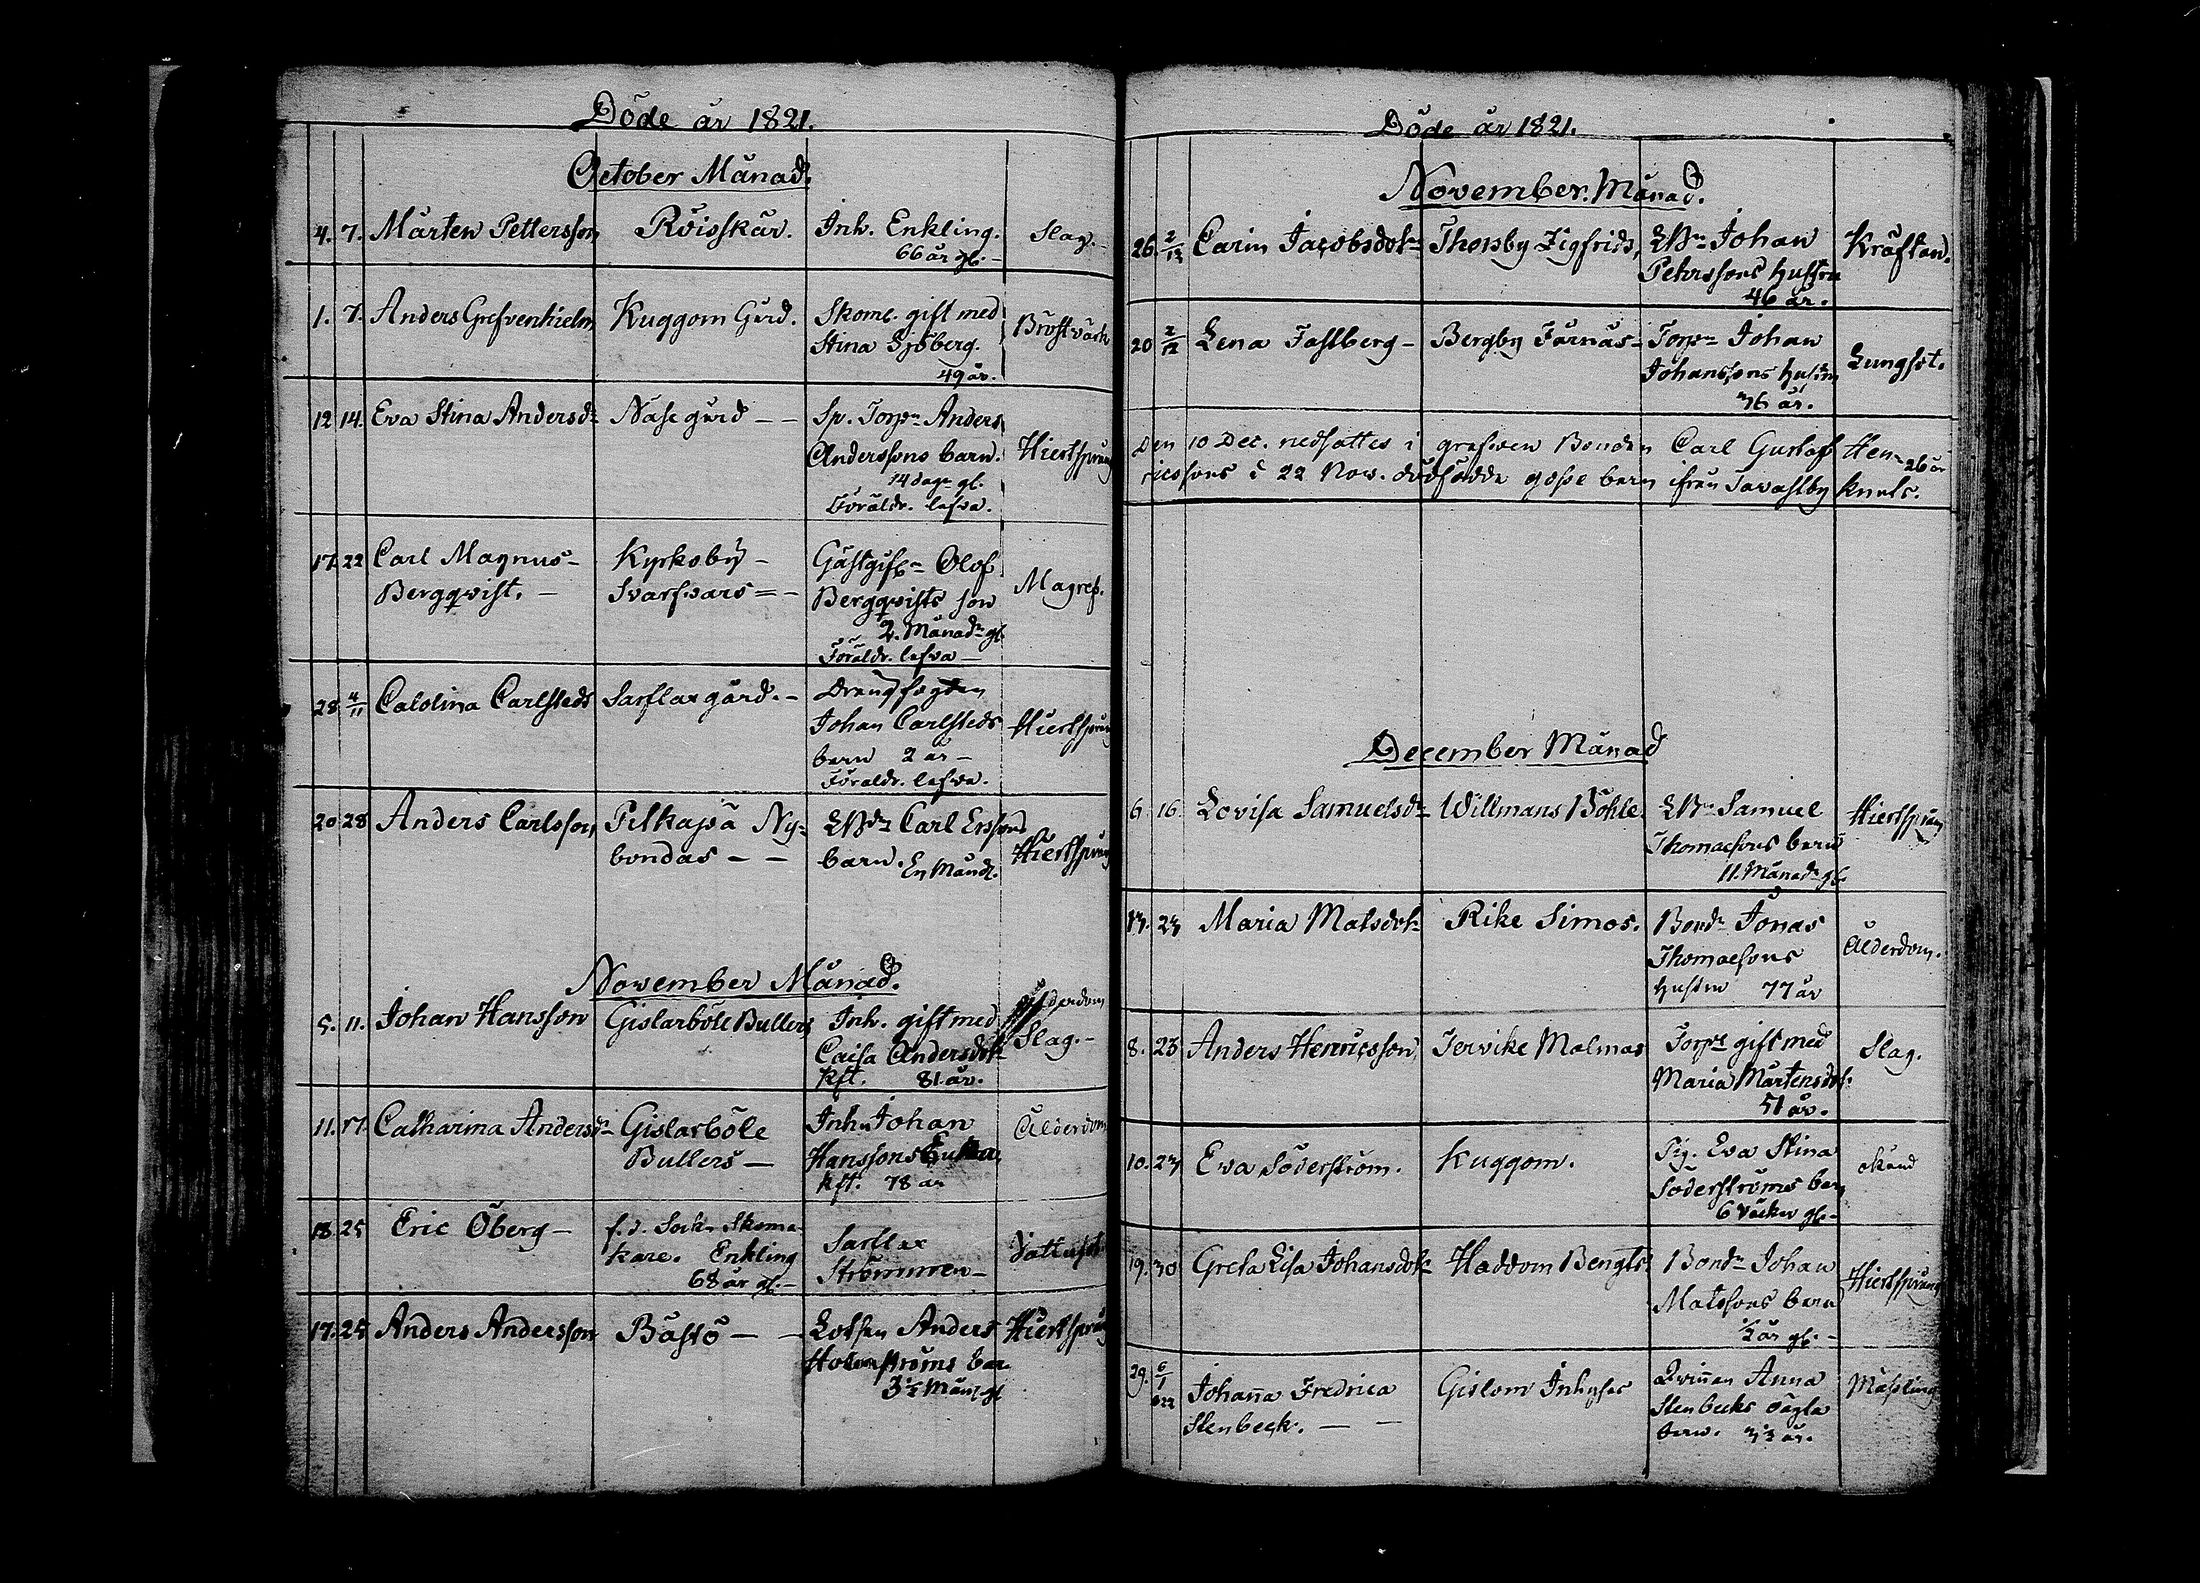 Döde år 1821.
October Månad.
4. 7. Mårten Pettersson Röisskär. Inh. Enkling. Slag.
66 år gl.
1. 7. Anders Grefvenhielm Kuggom Gård. Skom. gift med Bröstvärk
Stina Sjöberg.
49 år.
12 14. Eva Stina Andersdr Näse gård Sp. Torpr Anders
Anderssons barn. Hiertsprång
14 dagr gl.
Föräldr. lefva.
17. 22 Carl Magnus Kyrkoby Gästgifr Olof
Bergqvist. Svarfvars Bergqvists son Magref.
2. Månadr gl.
Föräldr. lefva
28 4/11 Calolina Carlsteds Sarflax gård. Drängfogden
Johan Carlsteds Hiertsprång
barn 2 år
Föraldr. lefva.
20 28 Anders Carlsson Pelkapä Ny= Carl Ersons
bondas barn. En Månd. Hiertsprång
November Månad.
5. 11. Johan Hansson Gislarböle Bullers Inh. gift med
Caisa Andersdotr Slag.
kft. 81 år.
11. 17. Catharina Andersdr Gislarböle Inh. Johan Ålderdom
Bullers Hanssons Enka
kft. 78 år
18. 25 Eric Öberg f.d. Sock. Skoma-
kare. Enkling Sarflax
68 år gl. Strömmen
17. 25 Anders Andersson Båstö Lotsen Anders Hiertsprång
Holmströms bar
3½ Mån. gl
Döde år 1821.
November. Månad.
26. 2/12 Carin Jacobsdotr Thorsby Zigfrids, Johan Kräftan.
Pehrssons hustru
46 år.
20 2/12 Lena Fastberg Bergby Färnäs Torpr Johan
Johanssons hustru Lungsot.
36 år.
Den 10 Dec. nedsattes i grafwen Bonden Carl Gustaf Hen-
ricssons d 22 Nov. dödfödde gosse barn ifrån Savastby Knuts. 26 år
December Månad
6. 16. Lovisa Samuelsdr Willmans Böhle. Samuel Hiertsprång
Thomaesons barn
11. Månadr gl.
13. 23 Maria Matsdotr Rike Simos. Bondn Jonas
Thomaesons Ålderdom.
hustru 77 år
8. 23 Anders Henricsson Tervike Malmas Torpr gift med Slag.
Maria Mårtensdotr.
51 år.
10. 23 Eva Söderström. Kuggom. Pig. Eva Stina okänd
Söderströms barn
6 Veckor gl.
19. 30 Greta Lisa Johansdotr Haddom Bengts. Bondn Johan Hiertsprång
Matssons barn
½ år gl.
29. 6/1 822 Johanna Fredrica Gislom Inhyses Qvinnan Anna Mässling
Stenbeck. Stenbecks oägta
barn. 3½ år.